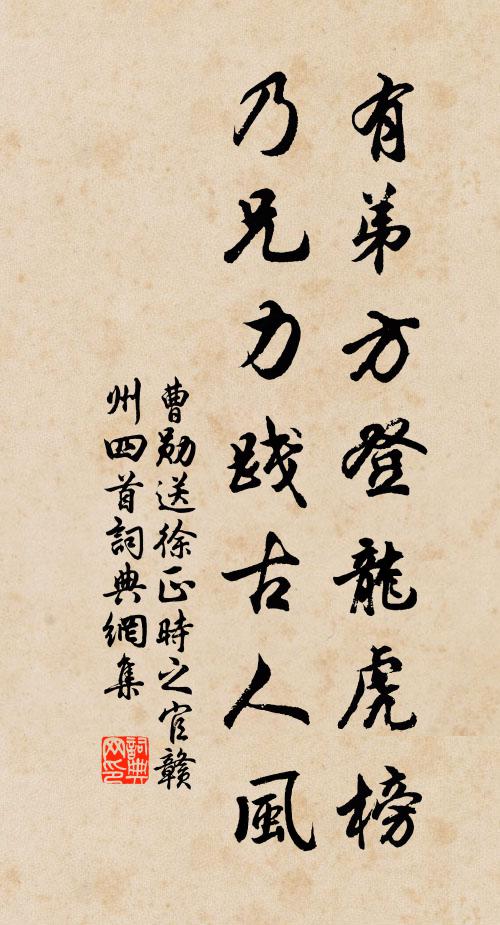 有弟方登龍虎榜
乃兄力踐古人風
曹勛送徐正時之官贛
州四首詞典網集
詞典
网印